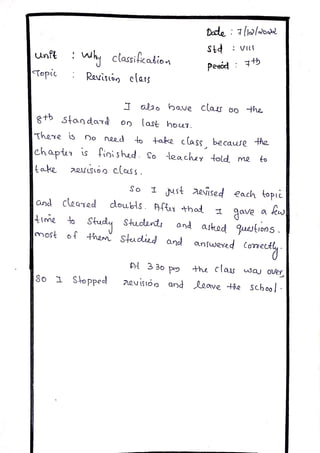 Date : 7/12/2022
Std : VIII
Unit : Why classification
Period : 7th
Topic : Revision class
I also have class on the
8th standard on last hour.
There is no need to take class, because the
chapter is finished. So teacher told me to
take revision class.
So I just revised each topic
and cleared doubts. After that I gave a few
time to study students and asked questions.
most of them studied and answered correctly.
At 3 30 pm the class was over,
So I stopped revision and leave the school.